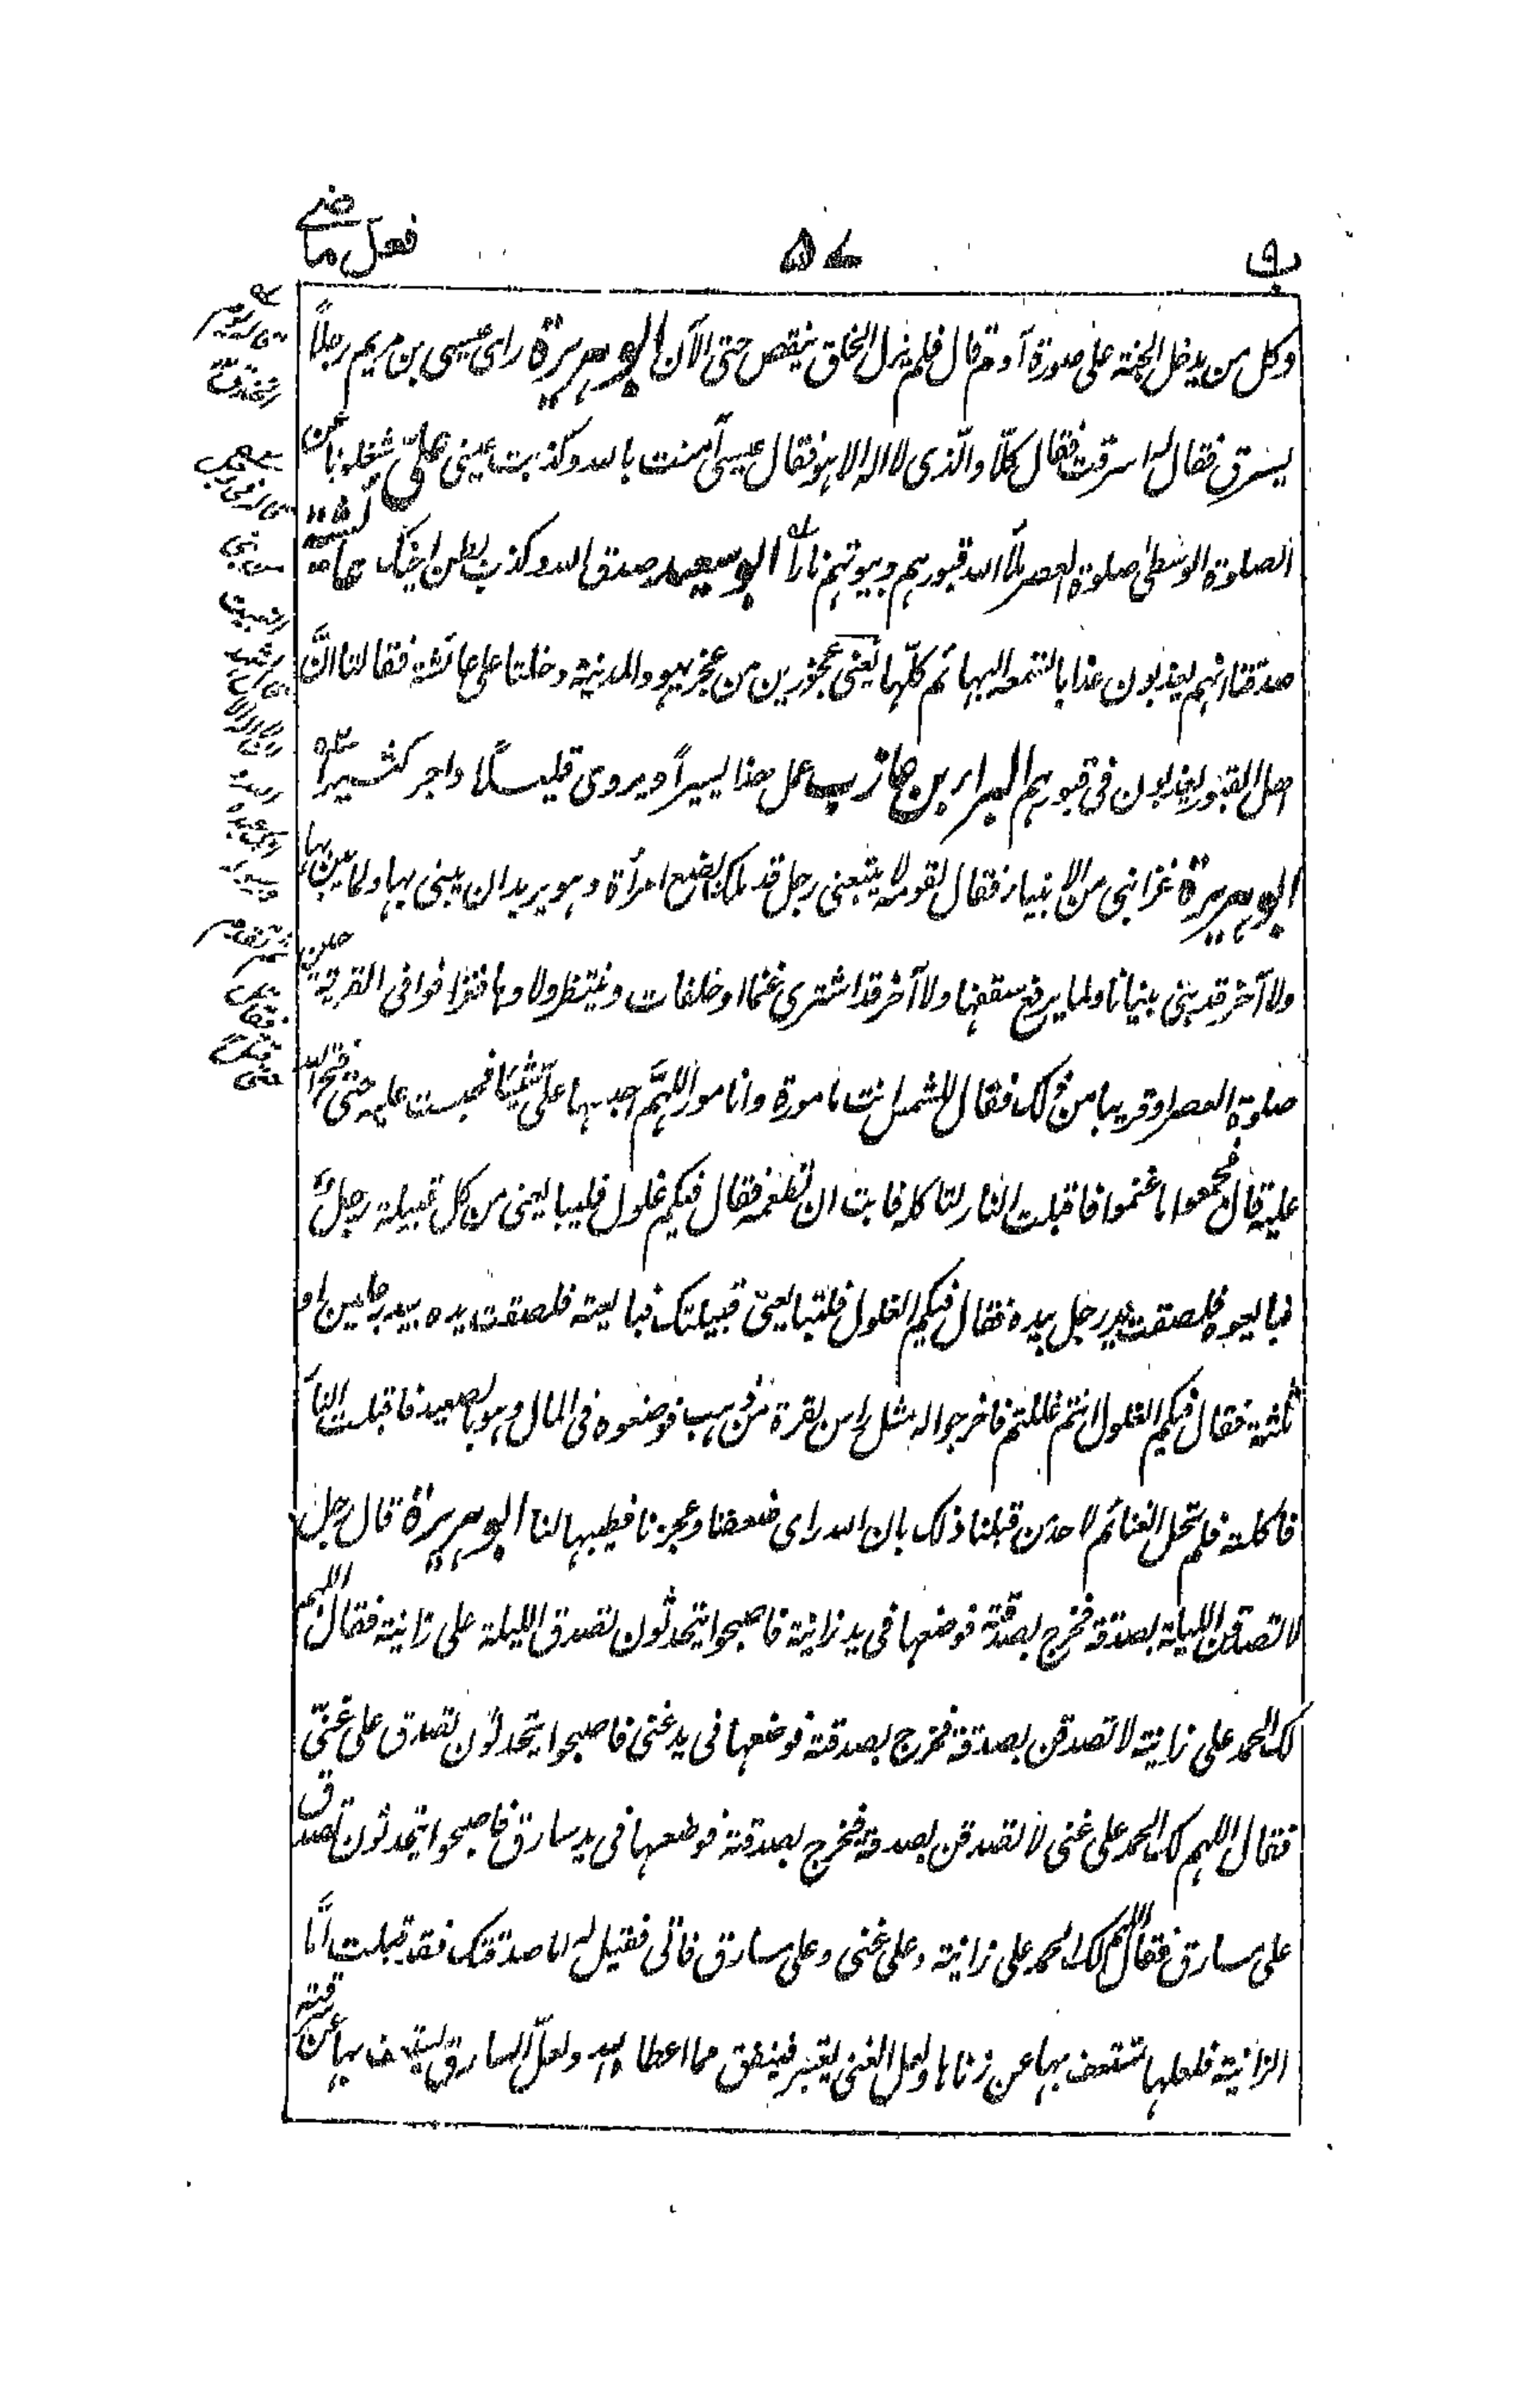 ب ٥٧ فعل ماضے
وكل من يدخل الجنة على صورة آدم قال فلم يزل الخلق ينقص حتى الآن ابو هريرة راى عيسى بن مريم رجلاً
يسرق فقال له اسرقت فقال كلّا والّذى لا اله الا هو فقال عيسى آمنت بالله وكذبت عينى علىّ شغلونا عن
الصلوة الوسطىٰ صلوة العصر ملأ الله قبورهم وبيوتهم ناراً ابو سعيد صدق الله وكذب بطن اخيك عائشة
صدقتا انهم يعذبون عذابا تسمعه البهائم كلّها يعنى عجوزين من عجز يهود المدينة دخلتا على عائشة فقالتا انّ
اهل القبور يعذبون فى قبورهم البراء بن عازب عمل هذا يسيراً ويروى قليلاً واجر كثيراً
ابو هريرة غزا نبى من الانبياء فقال لقومه لا يتبعنى رجل قد ملك بضع امرأة وهو يريد ان يبنى بها ولما يبن بها
ولا آخر قد بنى بنيانا ولما يرفع سقفها ولا آخر قد اشترى غنما او خلفات وينتظر ولادها فغزا فدنا فى القرية حين
صلوة العصر او قريبا من ذلك فقال للشمس انت مامورة وانا مامور اللهمّ احبسها علىّ شيئا فحبست عليه حتى فتح الله
عليه قال فجمعوا ما غنموا فاقبلت النار لتاكله فابت ان تطعمه فقال فيكم غلول فليبايعنى من كل قبيلة رجل
فبايعوه فلصقت يد رجل بيده فقال فيكم الغلول فلتبايعنى قبيلتك فبايعته فلصقت يده بيد رجلين او
ثلثة فقال فيكم الغلول انتم غللتم فاخرجوا له مثل راس بقرة من ذهب فوضعوه فى المال وهو بالصعيد فاقبلت النار
فاكلته فلم تحل الغنائم لاحد من قبلنا ذلك بان الله راى ضعفنا وعجزنا فطيبها لنا ابو هريرة قال رجل
لاتصدقن الليلة بصدقة فخرج بصدقته فوضعها فى يد زانية فاصبحوا يتحدثون تصدق الليلة على زانية فقال اللهم
لك الحمد على زانية لاتصدقن بصدقة فخرج بصدقته فوضعها فى يد غنى فاصبحوا يتحدثون تصدق على غنىّ
فقال اللهم لك الحمد على غنى لاتصدقن بصدقة فخرج بصدقته فوضعها فى يد سارق فاصبحوا يتحدثون تصدق
على سارق فقال اللهم لك الحمد على زانية وعلى غنى وعلى سارق فاتى فقيل له اما صدقتك فقد قبلت امّا
الزانية فلعلها تستعف بها عن زناها ولعل الغنى يعتبر فينفق مما اعطاه الله ولعلّ السارق يستعف بها عن سرقته